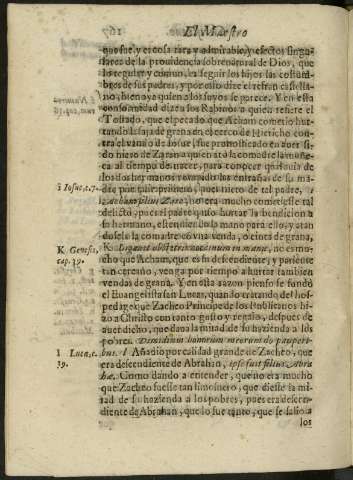 El Maestro
que fue, y es cosa rara y admirable, y efectos singu-
lares de la prouidencia sobrenatural de Dios, que
lo regular y comun, es seguir los hijos las costum-
bres de sus padres, y por esso dize el refran castella-
no, bien aya quien a los suyos se parece. Y en esta
conformidad dizen los Rabinos a quien refiere el
Tostado, que el pecado que Acham cometio hur-
tando la de grana en el cerco de Hiericho con-
tra el vando de Iosue, fue pronosticado en auer si-
do nieto de Zaran a quien ató la comadre la muñe-
ca al tiempo de nacer, para conocer qual de
los dos hermanos rompiendo las entrañas de su ma-
dre primero, pues nieto de tal padre,
filius Zare, no era mucho cometiesse tal
delicto, pues el padre quiso hurtar la bendicion a
su hermano, estendiendo la mano para ello, y atan
dosela la comadre con vna venda, o cinta de grana,
K Ligauit obstetrix coccinum in manu, no es mu-
cho que Acham, que es su descendiente, y pariente
tan cercano, venga por tiempo a hurtar tambien
vendas de grana. Y en esta razon pienso se fundó
el Euangelista san Lucas, quando tratando del hos-
pedage que Zacheo Principe de los Publicanos hi-
zo a Christo con tanto gusto y regalo, despues de
auer dicho, que daua la mitad de su hazienda a los
pobres. Dimidium bonorum meorum do pauperi-
bus. l Añadió por calidad grande de Zacheo, que
era descendiente de Abrahan, ipse fuit filius Abra-
hæ. Como dando a entender, que no era mucho
que Zacheo fuesse tan limosnero, que diesse la mi-
tad de su hazienda a los pobres, pues era descen-
diente de Abrahan, que lo fue tanto, que se salio a
los
Iosue, c. 7.
K Genesis,
cap. 39.
l Lucæ, c.
39.